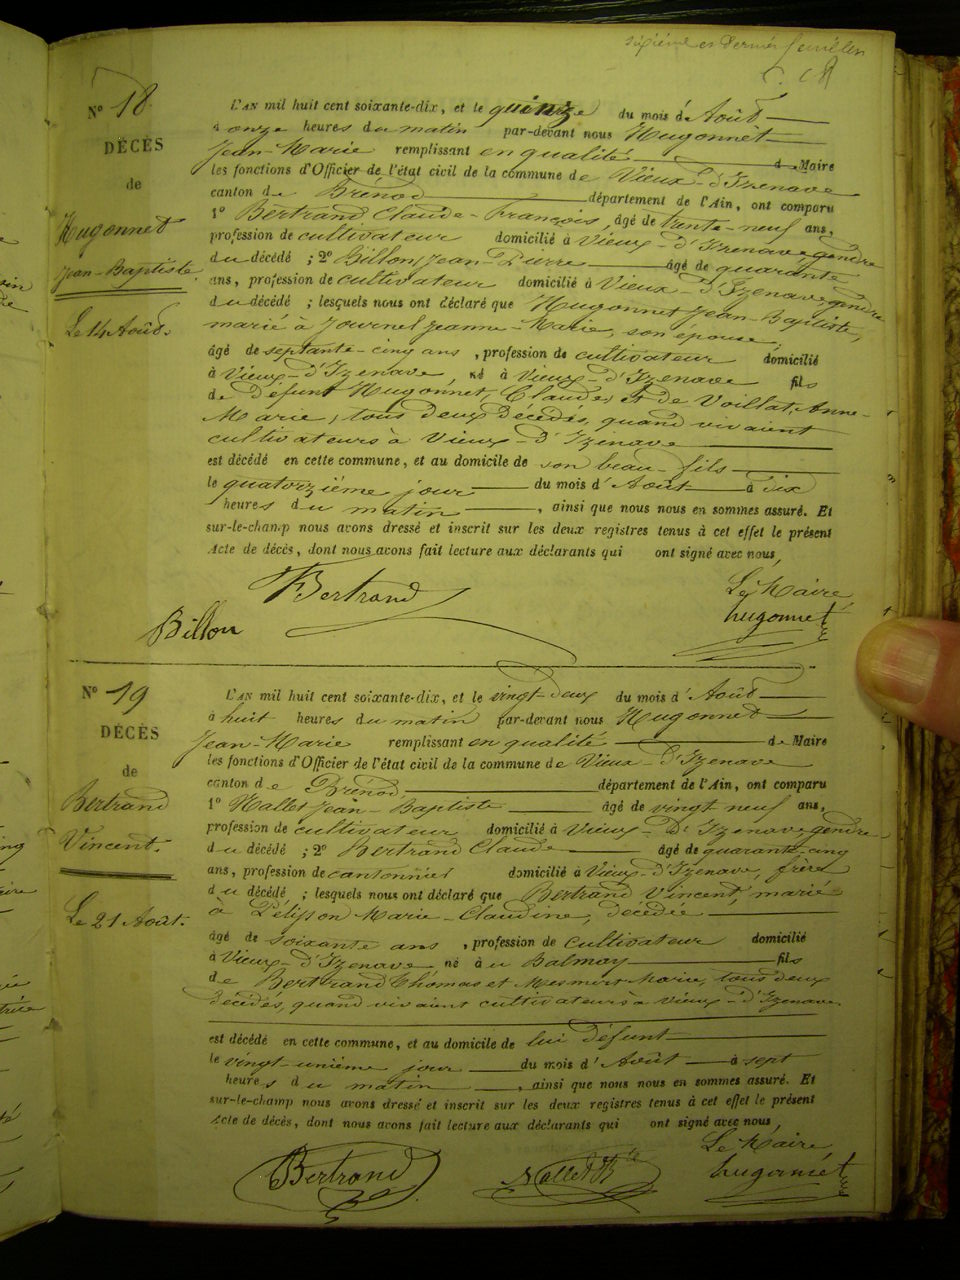 sixième et dernier feuillet
N° 18
DÉCÈS
de
Hugonnet
Jean-Baptiste
Le 14 Août.
L'AN mil huit cent soixante-dix, et le quinze du mois d'Août
à onze heures du matin par-devant nous Hugonnet
Jean-Marie remplissant en qualité de Maire
les fonctions d'Officier de l'état civil de la commune de Vieux-d'Izenave
canton de Brénod département de l'Ain, ont comparu
1° Bertrand Claude-François, âgé de trente-neuf ans,
profession de cultivateur domicilié à Vieux-d'Izenave, gendre
du décédé ; 2° Billon Jean-Pierre âgé de quarante
ans, profession de cultivateur domicilié à Vieux-d'Izenave, gendre
du décédé ; lesquels nous ont déclaré que Hugonnet Jean-Baptiste,
marié à Journel Jeanne-Marie, son épouse,
âgé de septante-cinq ans, profession de cultivateur domicilié
à Vieux-d'Izenave, né à Vieux-d'Izenave fils
de défunt Hugonnet, Claude, et de Voillat, Anne-
Marie, tous deux décédés, quand vivaient
cultivateurs à Vieux-d'Izenave
est décédé en cette commune, et au domicile de son beau-fils
le quatorzième jour du mois d'Août à six
heures du matin, ainsi que nous nous en sommes assuré. Et
sur-le-champ nous avons dressé et inscrit sur les deux registres tenus à cet effet le présent
Acte de décès, dont nous avons fait lecture aux déclarants qui ont signé avec nous,
Bertrand
Le Maire
Billon
hugonnet
N° 19
DÉCÈS
de
Bertrand
Vincent.
Le 21 Août.
L'AN mil huit cent soixante-dix, et le vingt-deux du mois d'Août
à huit heures du matin par-devant nous Hugonnet
Jean-Marie remplissant en qualité de Maire
les fonctions d'Officier de l'état civil de la commune de Vieux-d'Izenave
canton de Brénod département de l'Ain, ont comparu
1° Nallet Jean-Baptiste âgé de vingt neuf ans,
profession de cultivateur domicilié à Vieux-d'Izenave, gendre
du décédé ; 2° Bertrand Claude âgé de quarante-cinq
ans, profession de cantonnier domicilié à Vieux-d'Izenave, frère
du décédé ; lesquels nous ont déclaré que Bertrand Vincent, marié
à Pélisson Marie-Claudine, décédée
âgé de soixante ans, profession de cultivateur domicilié
à Vieux-d'Izenave né à au Balmay fils
de Bertrand Thomas et Mermet Marie, tous deux
décédés, quand vivaient cultivateurs à Vieux-d'Izenave
est décédé en cette commune, et au domicile de lui défunt
le vingt-unième jour du mois d'Août à sept
heures du matin, ainsi que nous nous en sommes assuré. Et
sur-le-champ nous avons dressé et inscrit sur les deux registres tenus à cet effet le présent
Acte de décès, dont nous avons fait lecture aux déclarants qui ont signé avec nous,
Le Maire
Bertrand Nallet JBte hugonnet